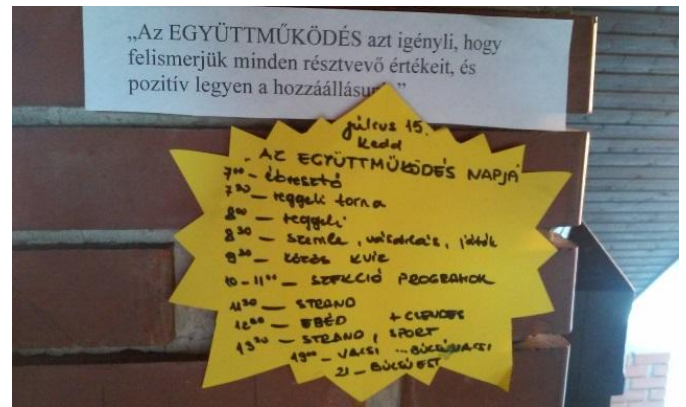 „Az EGYÜTTMŰKÖDÉS azt igényli, hogy
felismerjük minden résztvevő értékeit, és
pozitív legyen a hozzáállásu
július 15.
kedd
AZ EGYÜTTMŰKÖDÉS NAPJA
7⁰⁰ – ébresztő
7³⁰ – reggeli torna
8⁰⁰ – reggeli
8³⁰ – szemle, vásárlás, játék
9³⁰ – közös kvíz
10 – 11⁰⁰ – SZEKCIÓ PROGRAMOK
11³⁰ – STRAND
12⁰⁰ – EBÉD + CSENDES
13³⁰ – STRAND, SPORT
19⁰⁰ – VACSI
21 – BÚCSÚEST